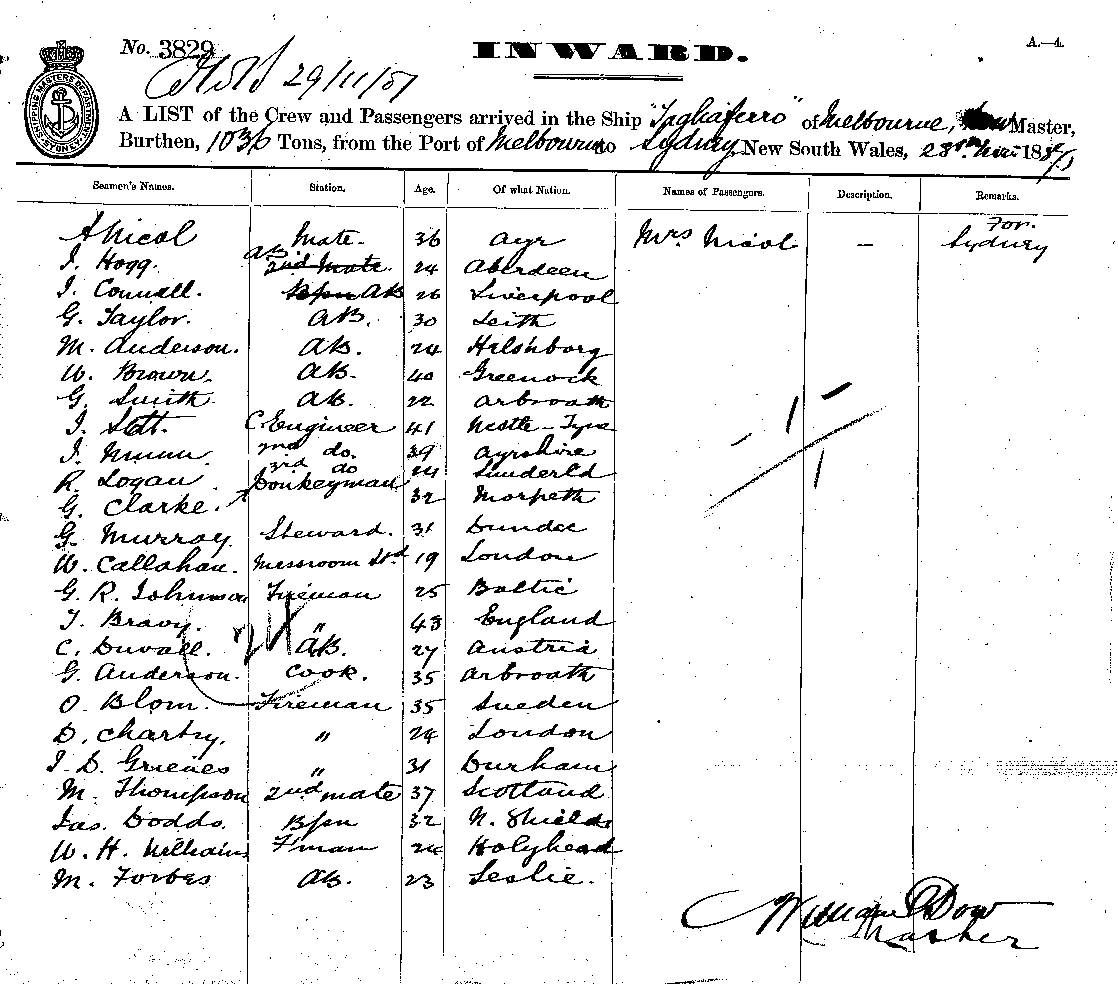 No. 3829
INWARD.
A.—4.
29/11/87
SHIPPING MASTERS DEPARTMENT SYDNEY
A LIST of the Crew and Passengers arrived in the Ship "Tagliaferro" of Melbourne, Dow Master,
Burthen, 1036 Tons, from the Port of Melbourne to Sydney, New South Wales, 28th 1887
Seamen's Names. Station. Age. Of what Nation. Names of Passengers. Description. Remarks.
A Nicol Mate. 36 Ayr Mrs Nicol — For Sydney
J. Hogg. AB 2nd Mate 24 Aberdeen
J. Connell. AB 26 Liverpool
G. Taylor. AB. 30 Leith
M. Anderson. AB. 24 Helsinborg
W. Brown. AB. 40 Greenock
G. Smith. AB. 22 Arbroath
J. C. Engineer 41
J. 2nd do. 39 Ayrshire
R. Logan 3rd do 24 Sunderld
G. Clarke. Donkeyman 32 Morpeth
G. Murray. Steward. 31 Dundee
W. Callahan. Messroom Std 19 London
G. R. Johnson Fireman 25 Baltic
T. Bravy. " 43 England
C. Duvall. AB. 27 Austria
G. Anderson. Cook. 35 Arbroath
O. Blom. Fireman 35 Sweden
D. Chartry. " 24 London
J. D. Grieves " 31 Durham
M. Thompson 2nd mate 37 Scotland
Jas. Dodds. Bsn 32 N. Shields
W. H. Williams Fman 24 Holyhead
M. Forbes AB. 23 Leslie.
William Dow
Master